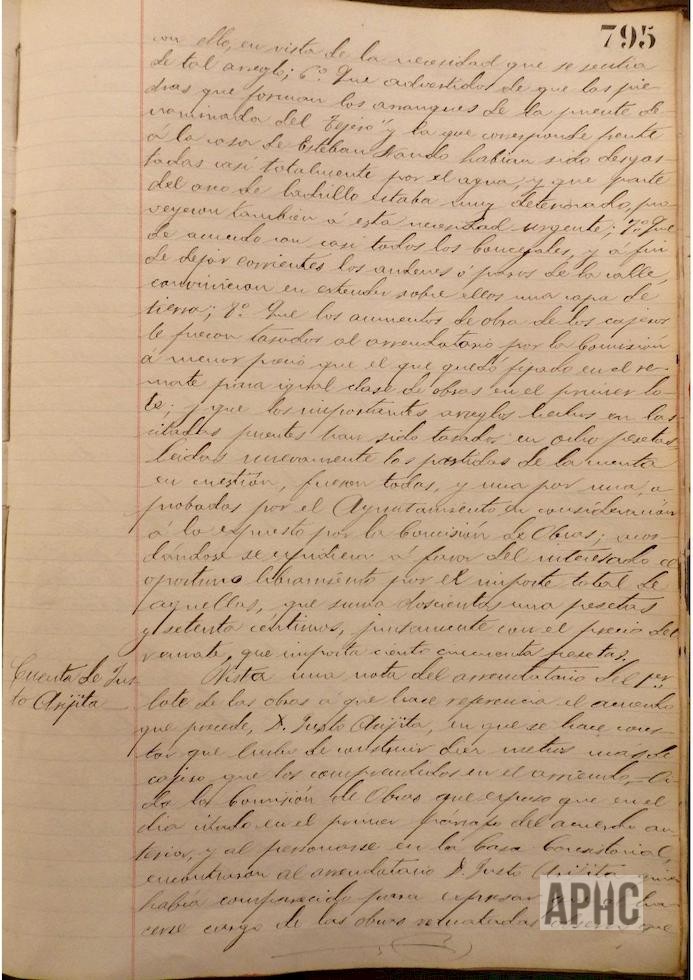 795
con ello, en vista de la necesidad que se sentia
de tal arreglo; 6º Que advertidos de que las pie-
dras que forman los arranques de la puente de-
nominada del "Tejero" y la que corresponde frente
a la casa de Esteban Nando habian sido desgas-
tadas casi totalmente por el agua, y que parte
del arco de ladrillo estaba muy deteriorado, pro-
veyeron tambien á esta necesidad urgente; 7º Que
de acuerdo con casi todos los Concejales, y á fin
de dejar corrientes los andenes ó paseos de la calle,
convinieron en extender sobre ellos una capa de
tierra; 8º Que los aumentos de obra de los cajeros
le fueron tasados al arrendatario por la Comisión
á menor precio que el que quedó fijado en el re-
mate para igual clase de obras en el primer lo-
te; y que los importantes arreglos hechos en las
citadas puentes han sido tasados en ocho pesetas.
Leidas nuevamente las partidas de la cuenta
en cuestión, fueron todas, y una por una, a-
probadas por el Ayuntamiento en consideración
á lo expuesto por la Comisión de Obras; acor-
dándose se expidiera á favor del interesado el
oportuno libramiento por el importe total de
aquellas, que suma doscientas una pesetas
y setenta céntimos, juntamente con el precio del
remate, que importa ciento cincuenta pesetas.
Cuenta de Jus-
to Arijita
Vista una nota del arrendatario del 1er
lote de las obras á que hace referencia el acuerdo
que precede, D. Justo Arijita, en que se hace cons-
tar que hubo de construir diez metros mas de
cajero que los comprendidos en el arriendo,= Oi-
da la Comisión de Obras que expuso que en el
dia citado en el primer parrafo del acuerdo an-
terior, y al personarse en la Casa Consistorial,
encontraron al arrendatario D. Justo Arijita
había comparecido para expresar
cerse cargo de las obras rematadas que
APHC